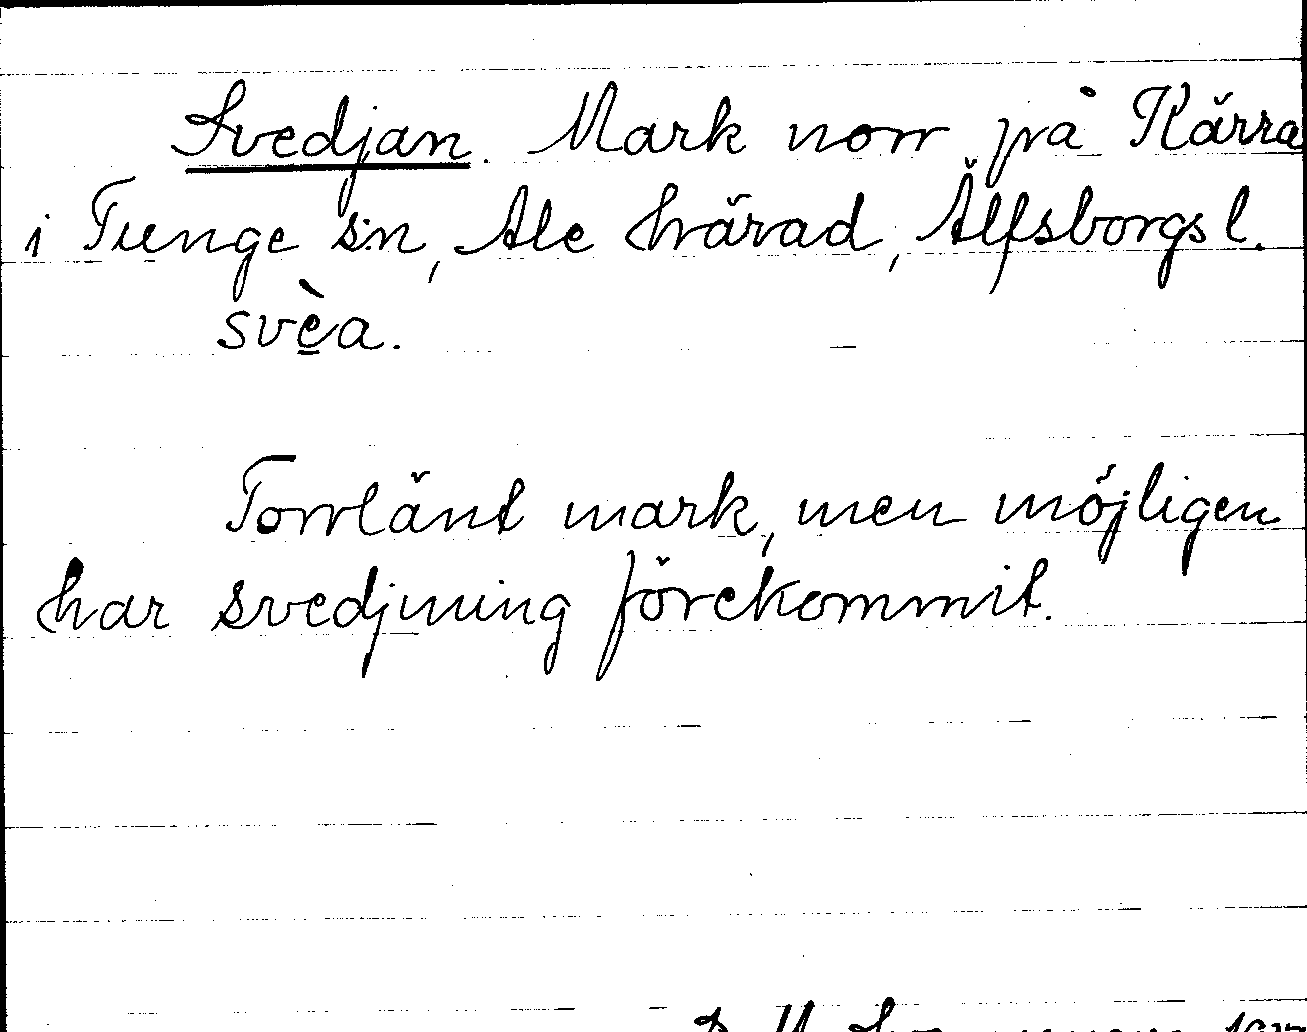 Svedjan. Mark norr på Kärra
i Tunge s:n, Ale härad, Älfsborgs l.
svèa.
Torrlänt mark, men möjligen
har svedjning förekommit.